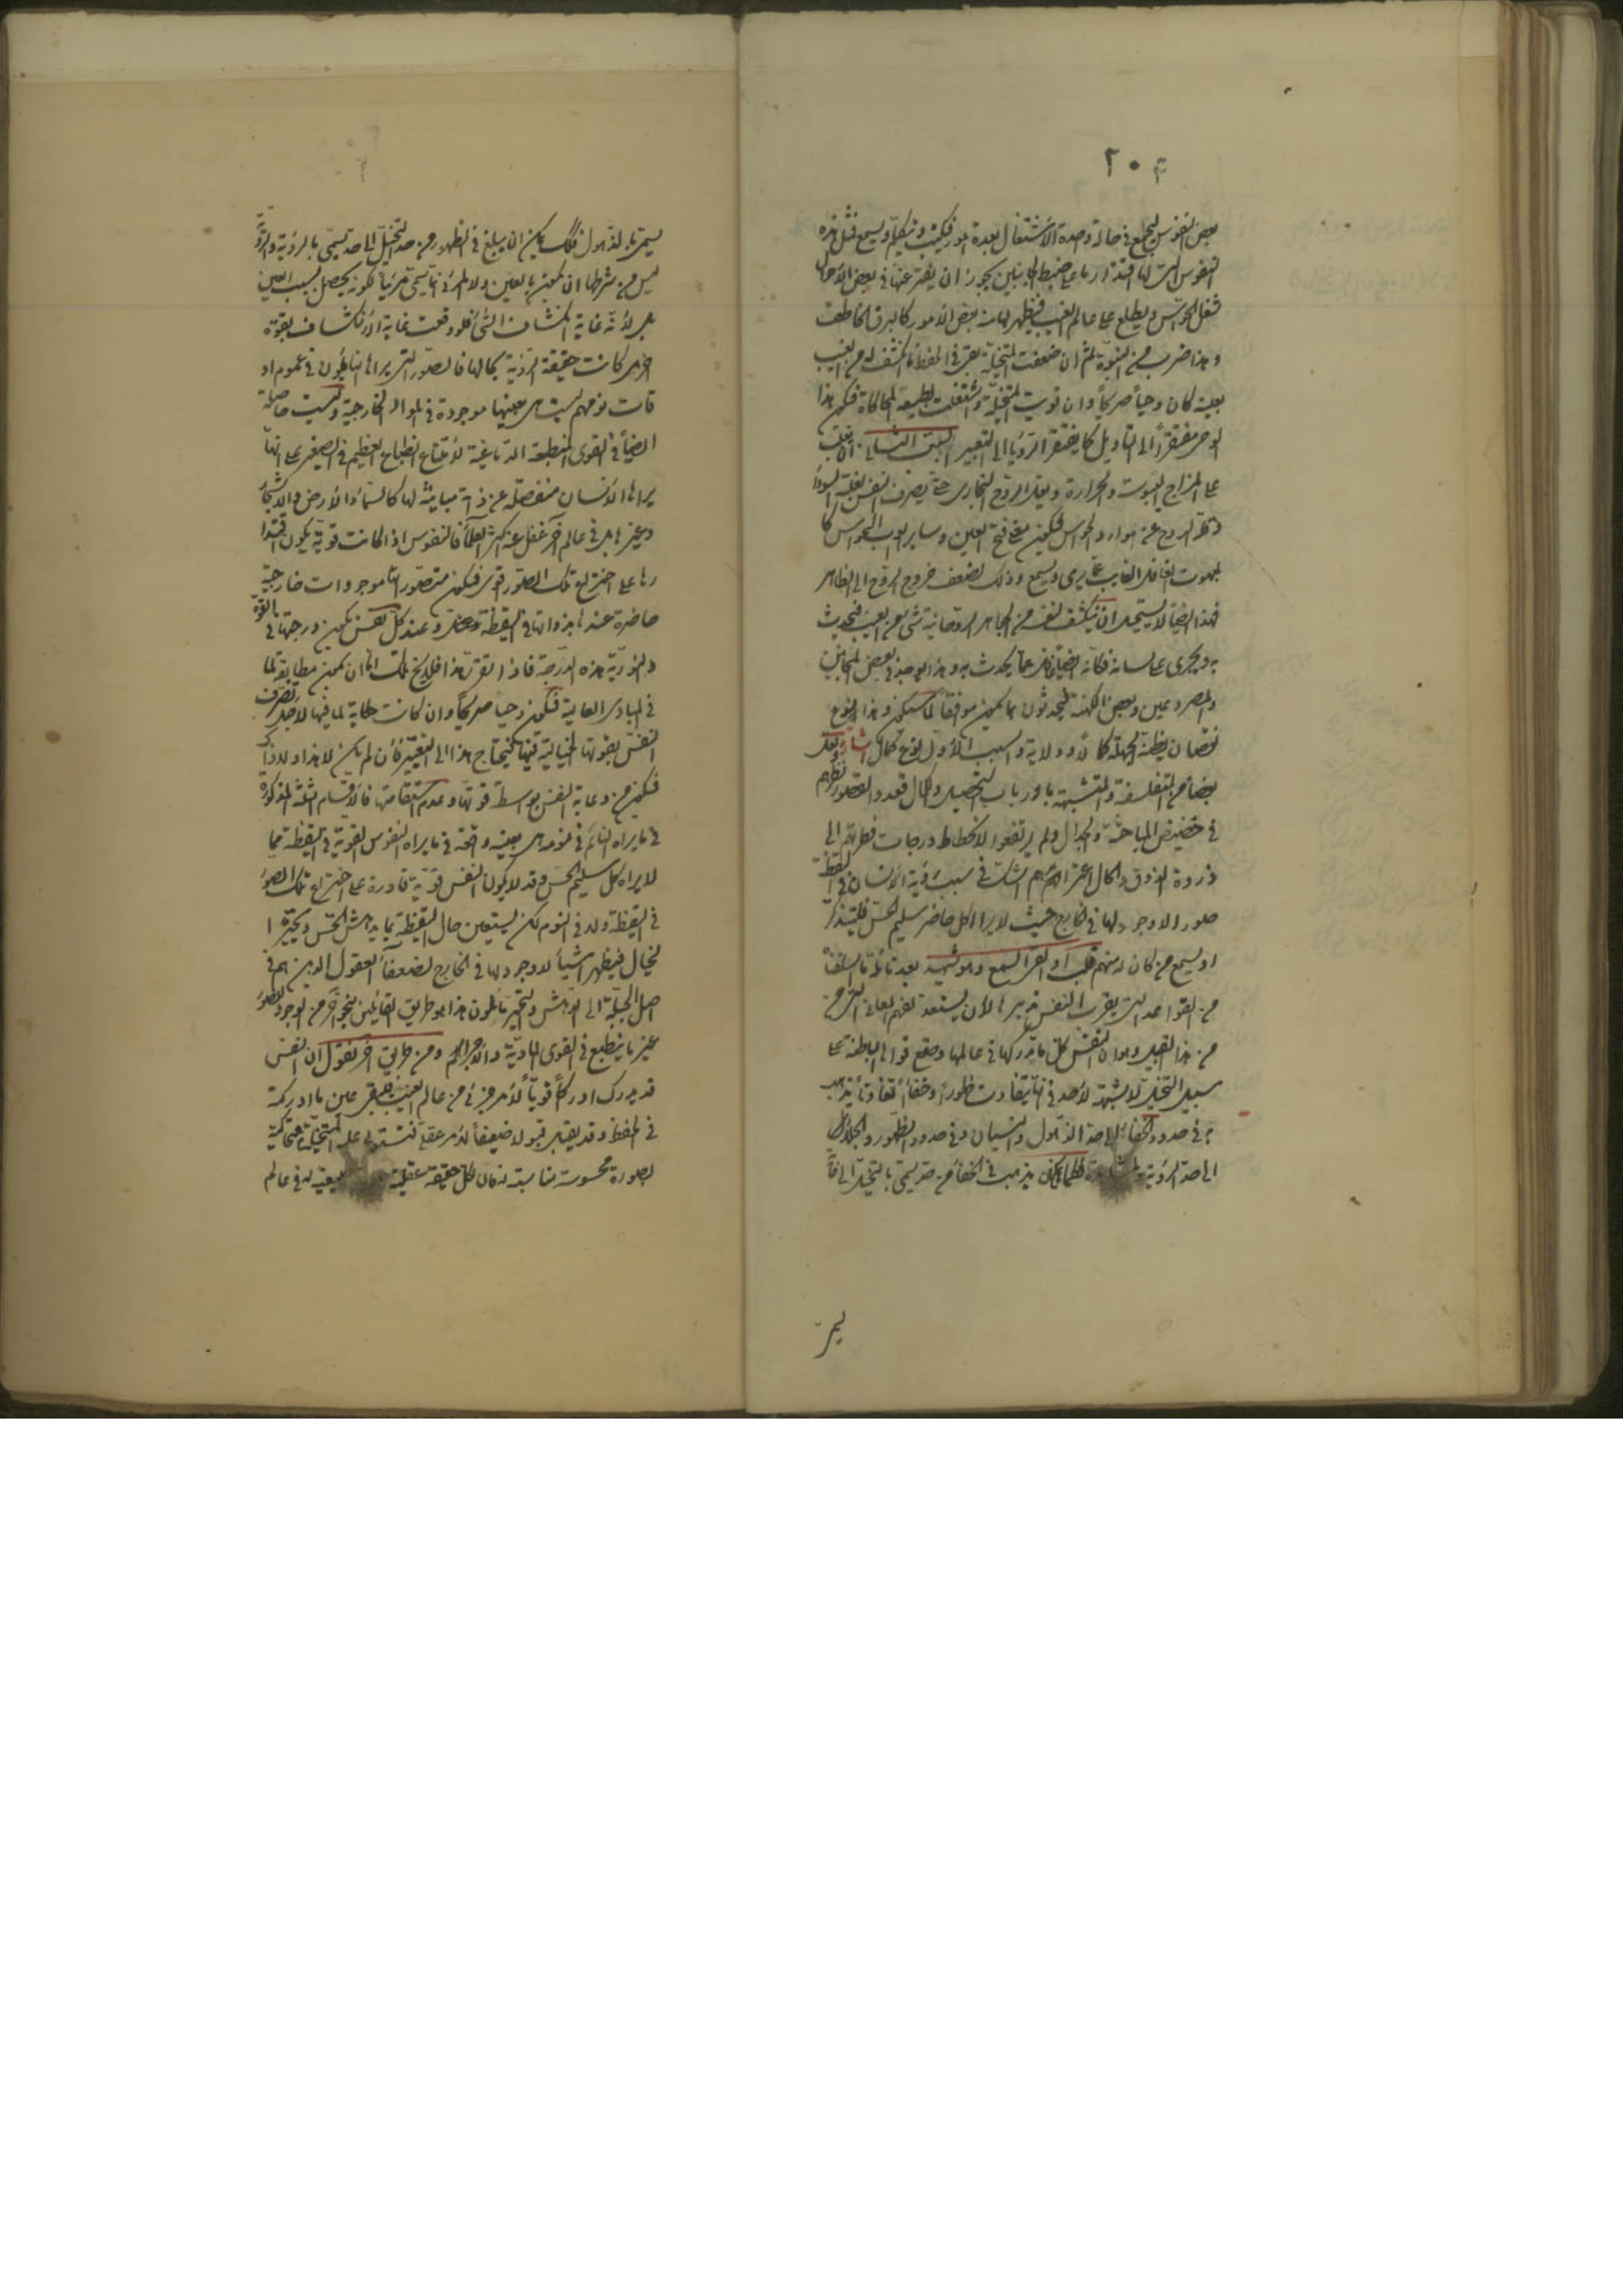 ٢٠٤
بعض النفوس يجمع في حالة واحدة الاشتغال بعدة امور فيكتب ويتكلم ويسمع فمثل هذه
النفوس التي لها اقتدار ما على ضبط الجانبين يجوز ان يفتر عنها في بعض الاحوال
شغل الحواس ويطلع على عالم الغيب فيظهر لها منه بعض الامور كالبرق الخاطف
وهذا ضرب من النبوة ثم ان ضعفت المتخيلة بقي في الحفظ ما انكشف له من الغيب
بعينه كان وحيا صريحا وان قويت المتخيلة واشتغلت بطبيعة المحاكاة فيكون هذا
الوحي مفتقرا الى التاويل كما يفتقر الرؤيا الى التعبير السبب الثاني ان يغلب
على المزاج اليبوسة والحرارة ويقل الروح البخاري حتى يصرف النفس لغلبة السوداء
وقلة الروح عن موارد الحواس فيكون مع فتح العين وساير ابواب الحواس كا
لمبهوت الغافل الغايب عما يرى ويسمع وذلك لضعف خروج الروح الى الظاهر
فهذا ايضا لا يستحيل ان ينكشف لنفسه من الجواهر الروحانية شيء من الغيب فيحدث
به ويجري على لسانه فكانه ايضا غافل عما يحدث به وهذا يوجد في بعض المجانين
والمصروعين وبعض الكهنة فيحدثون بما يكون موافقا لما سيكون وهذا نوع
نقصان يظنه الجهلة كمالا وولاية والسبب الاول نوع كمال اشارة ولعل
بعضا من المتفلسفة والمتشبهة بارباب التحصيل والكمال قعدوا لقصور نظرهم
في حضيض المباحثة والجدال ولم يرتفعوا لانحطاط درجات فطرتهم الى
ذروة الذوق والكمال اعتراهم الشك في سبب رؤية الانسان في اليقظة
صورا لا وجود لها في الخارج بحيث لا يراها كل حاضر سليم الحس فليتذكر
او يسمع من كان له منهم قلب او القى السمع وهو شهيد بعد تامله ما اسلفنا
من القواعد التي يقرب النفس بتدبرها لان يستعد لفهم المعاني التي هي
من هذا القبيل وهو ان النفس كل ما يدركها في عالمها وصقع قواها الباطنة على
سبيل التخيل لا شبهة لاحد في انها يتفاوت ظهورا وخفاء تفاوتا يذهب
به في حدود الخفاء الى حد الذهول والنسيان وفي حدود الظهور والجلاء
الى حد الرؤية والمشاهدة فكما يمكن ان يذهب في الخفاء من حد يسمى بالتخيل الى ما
يسمى
يسمى بالذهول فكذلك يمكن ان يبلغ في الظهور من حد التخيل الى حد يسمى بالرؤية والرؤية
ليس من شرطها ان تكون بالعين ولا المرئي انما يسمى مرئيا لكونه يحصل بسبب العين
بل لانه غاية انكشاف الشيء فلو وقعت غاية الانكشاف بقوة
اخرى كانت حقيقة الرؤية بحالها فالصور التي يراها النايمون في عموم او
قات نومهم ليست هي بعينها موجودة في المواد الخارجية وليست حاصلة
ايضا في القوى المنطبعة الدماغية لامتناع انطباع العظيم في الصغير على انها
يراها الانسان منفصلة عن ذاته مباينة لها كالسماء والارض والاشجار
وغيرها بل في عالم آخر غفل عنه اكثر العلماء فالنفوس اذا كانت قوية يكون اقتدا
رها على اختراع تلك الصور اقوى فيكون متصوراتها موجودات خارجية
حاضرة عندها بذواتها في اليقظة وعند كل نفس يكون درجتها في القوة
والنورية هذه الدرجة فاذا تقرر هذا فلا يخ تلك اما ان يكون مطابقة لما
في المبادي العالية فيكون وحيا صريحا وان كانت حكاية لما فيها لاجل تصرف
النفس بقوتها الخيالية فيها فيحتاج هذا الى التعبير فان لم يكن لا هذا ولا ذاك
فيكون من دعابة النفس بواسطة قوتها وعدم استقامتها فالاقسام الثلثة المذكورة
في ما يراه النائم في نومه هي بعينها واقعة في ما يراه النفوس القوية في اليقظة مما
لا يراه كل سليم الحس وقد لا يكون النفس قوية قادرة على اختراع تلك الصور
في اليقظة ولا في النوم لكن يستعين حال اليقظة بما يدهش الحس ويحير ا
لخيال فيظهر اشياء لا وجود لها في الخارج لضعفاء العقول الذين هم في
اصل الجبلة الى الدهش والتحير مائلون هذا هو طريق القايلين بنحو آخر من الوجود للصور
غير ما ينطبع في القوى المادية والاجرام ومن طريق آخر نقول ان النفس
قد يدرك ادراكا قويا لامر جزئي من عالم الغيب فيبقى عين ما ادركته
في الحفظ وقد يقبل قبولا ضعيفا لامر عقلي فتستولي عليه المتخيلة فتحاكيه
بصورة محسوسة مناسبة له فان لكل حقيقة عقلية له في عالم